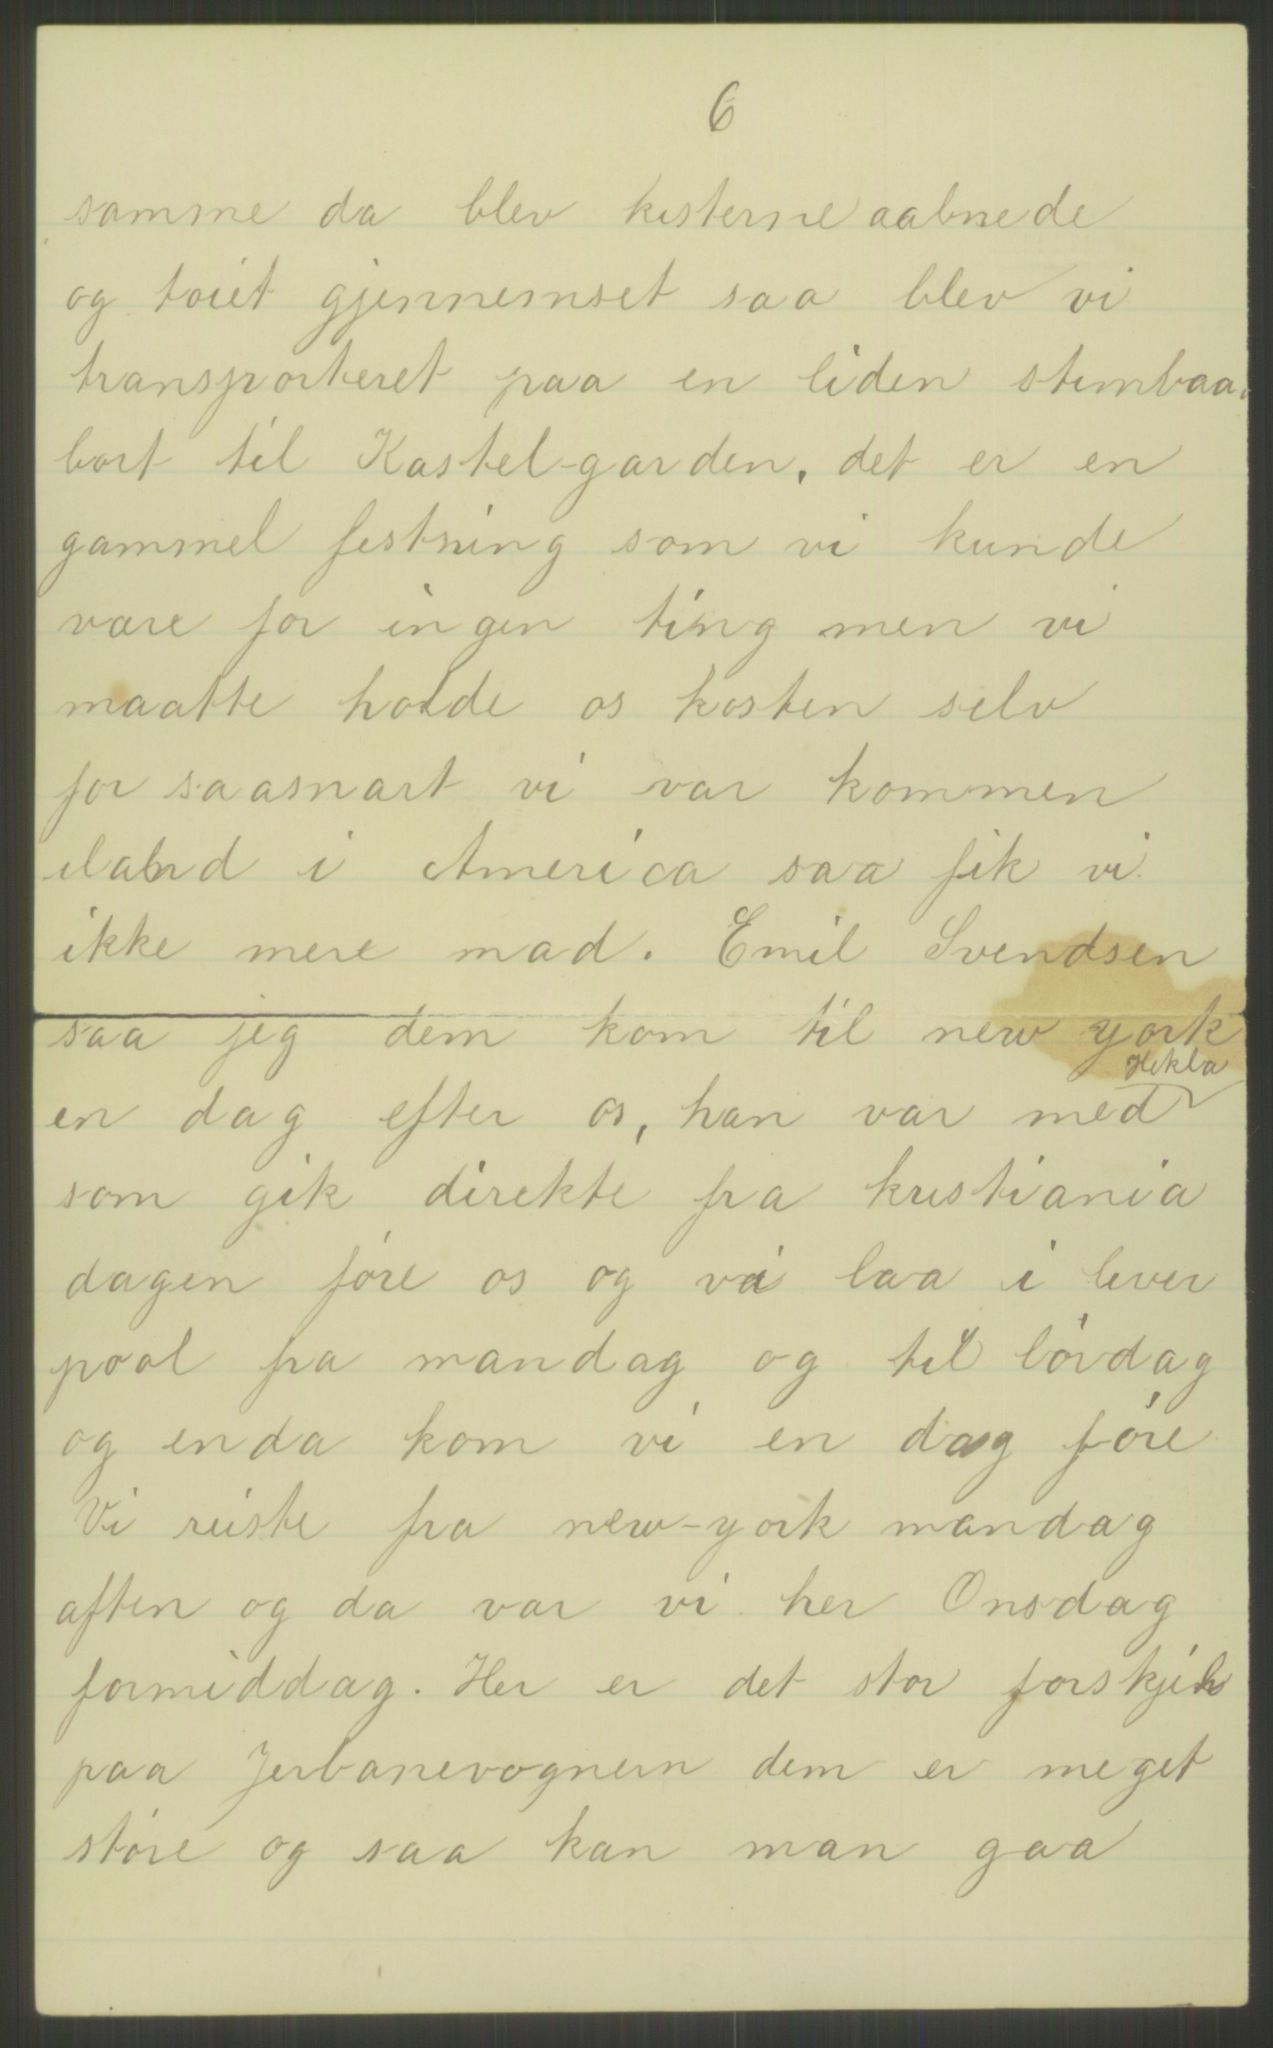 6
samme da blev kisterne aabnede
og toiet gjennemset saa blev vi
transporteret paa en liden stembaa
bort til Kastel-garden, det er en
gammel festning som vi kunde
være for ingen ting men vi
maatte holde os kosten selv
for saasnart vi var kommen
iland i America saa fik vi
ikke mere mad. Emil Svendsen
saa jeg dem kom til new york
en dag efter os, han var med Hekla
som gik direkte fra kristiania
dagen føre os og vi laa i liver
pool fra mandag og til lørdag
og enda kom vi en dag føre
Vi reiste fra new-york mandag
aften og da var vi her Onsdag
formiddag. Her er det stor forskjel
paa Jerbanevognern dem er meget
støre og saa kan man gaa